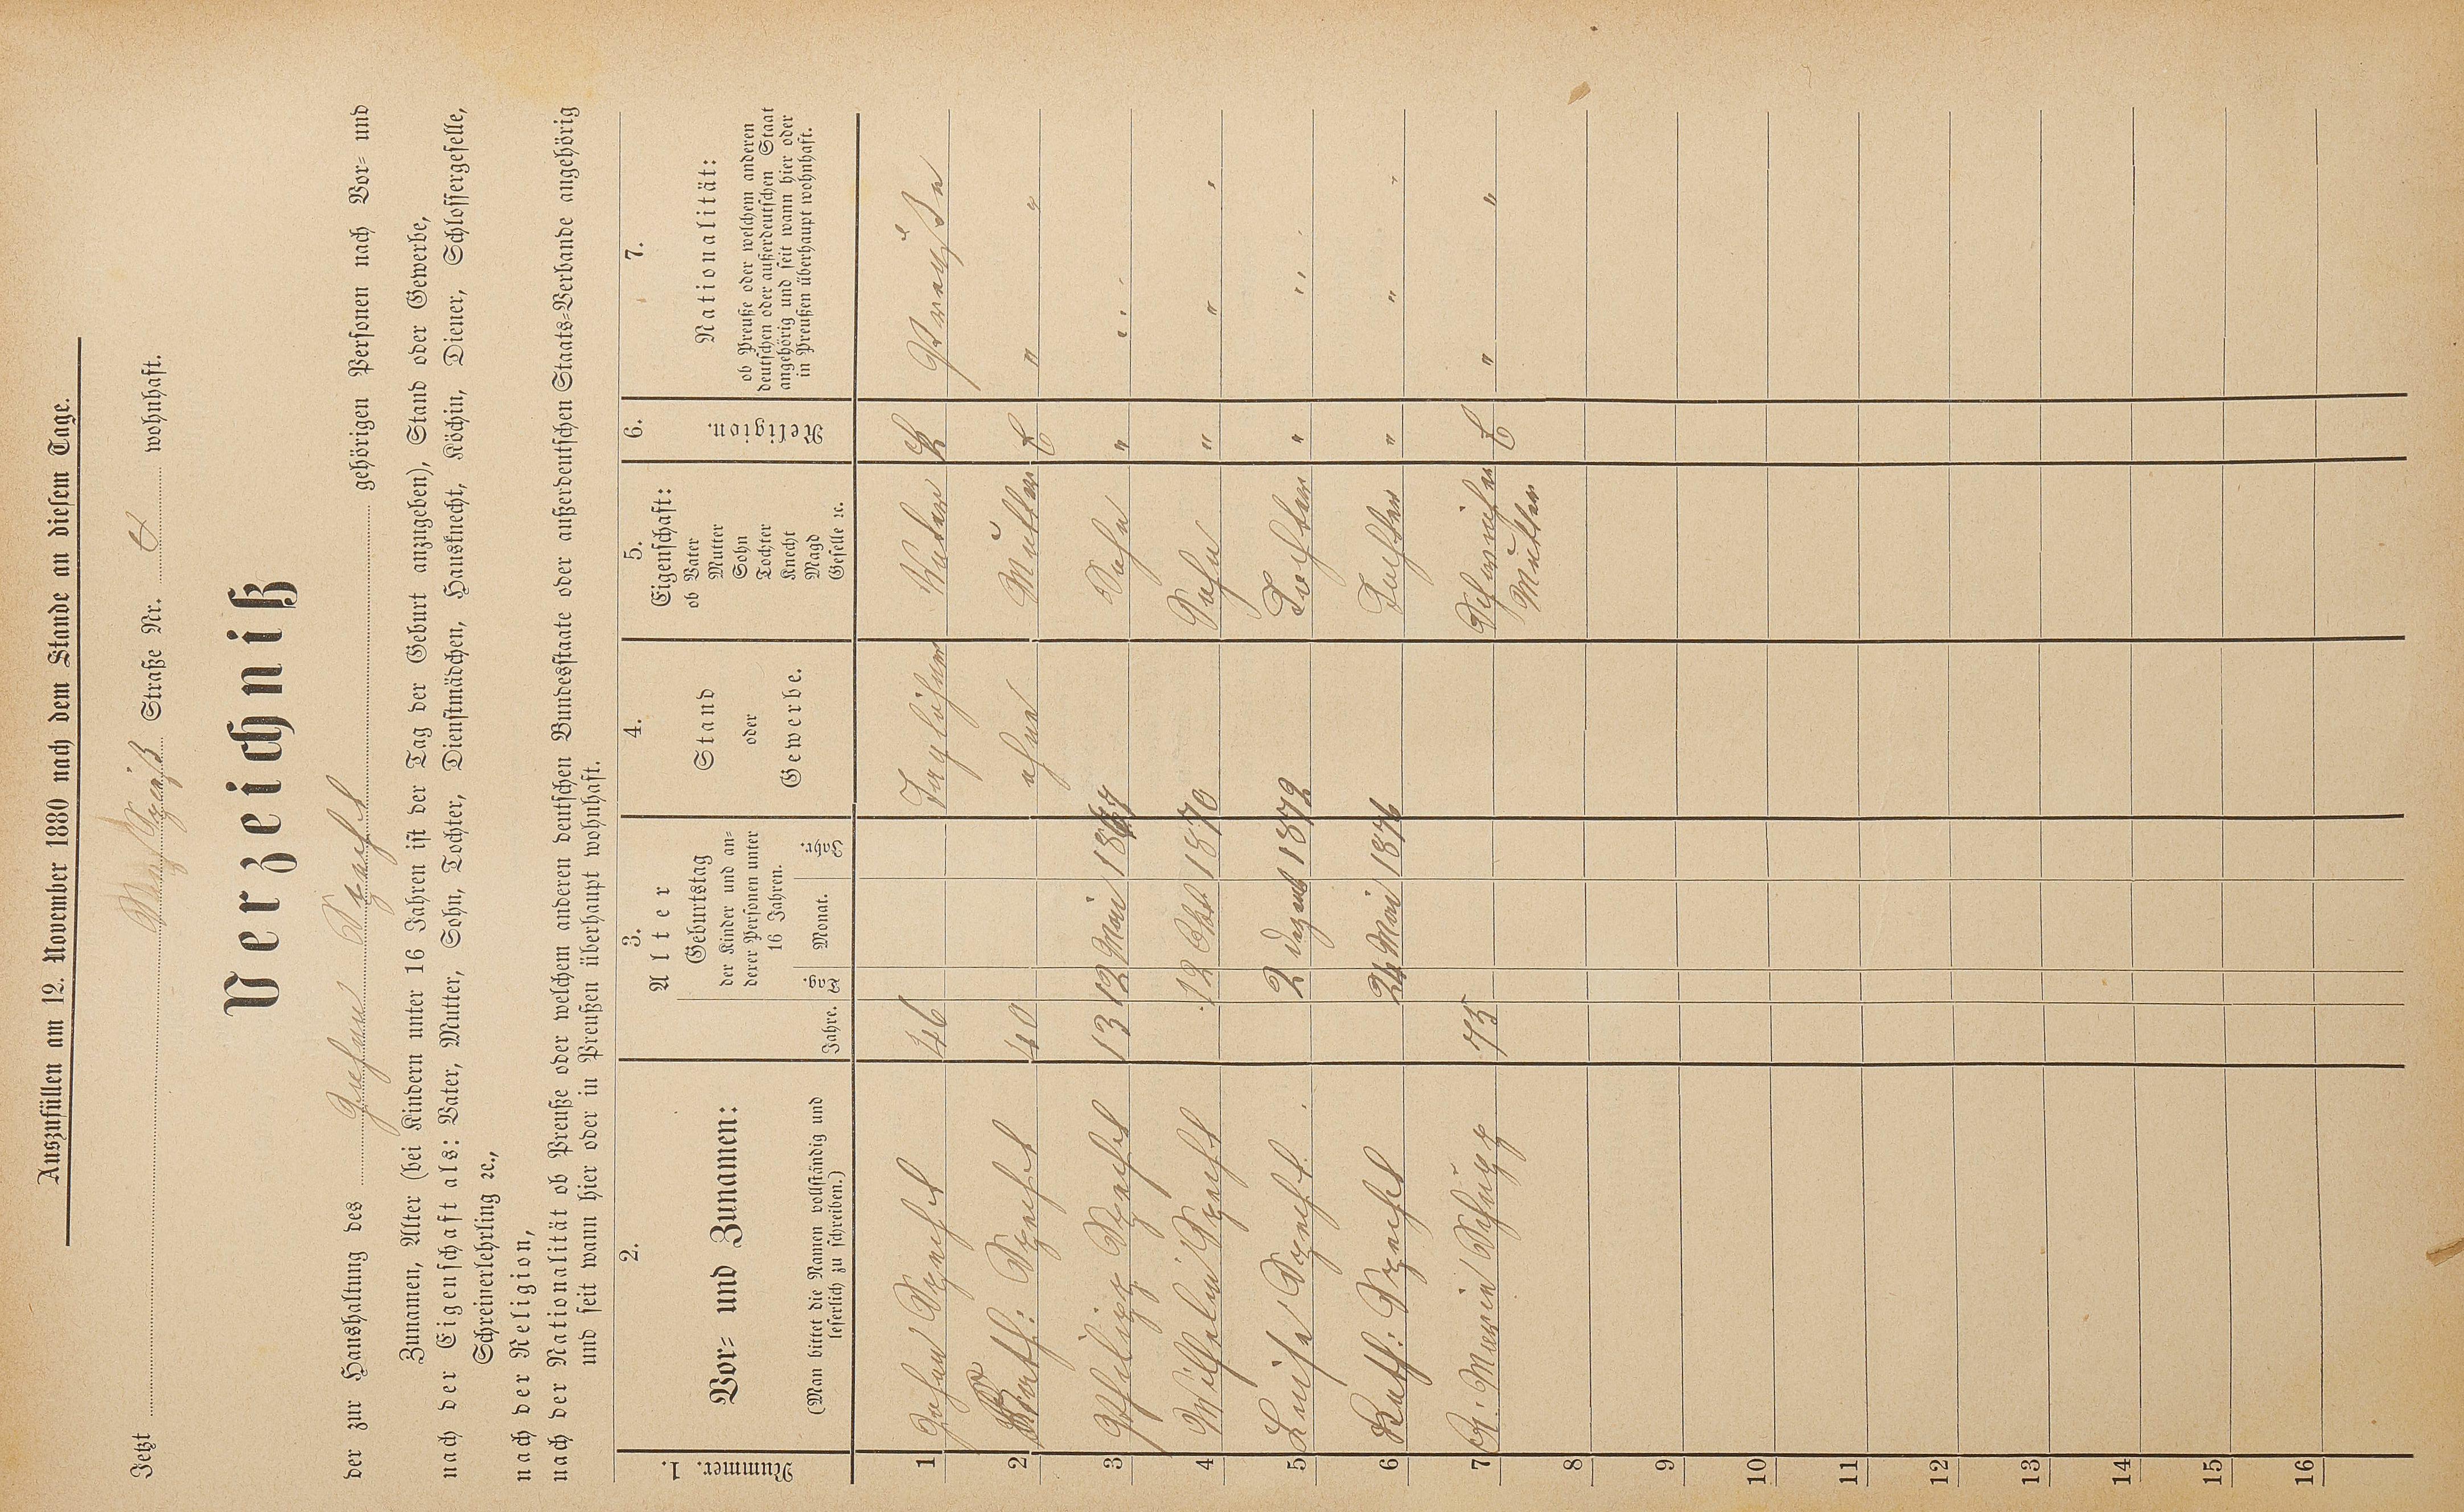 Auszufüllen am 12. November 1880 nach dem Stande an diesem Tage.
Jetzt Straße Nr. wohnhaft.
Verzeichniß
der zur Haushaltung des Johann Specht gehörigen Personen nach Vor= und
Zunamen, Alter (bei Kindern unter 16 Jahren ist der Tag der Geburt anzugeben), Stand oder Gewerbe,
nach der Eigenschaft als: Vater, Mutter, Sohn, Tochter, Dienstmädchen, Hausknecht, Köchin, Diener, Schlossergeselle,
Schreinerlehrling ꝛc.,
nach der Religion,
nach der Nationalität ob Preuße oder welchem anderen deutschen Bundesstaate oder außerdeutschen Staats=Verbande angehörig
und seit wann hier oder in Preußen überhaupt wohnhaft.
1. Nummer.
2. Vor= und Zunamen:
(Man bittet die Namen vollständig und
leserlich zu schreiben.)
3. Alter
Jahre.
Geburtstag
der Kinder und an=
derer Personen unter
16 Jahren.
Tag. Monat. Jahr.
4. Stand
oder
Gewerbe.
5. Eigenschaft:
ob Vater
Mutter
Sohn
Tochter
Knecht
Magd
Geselle ꝛc.
6. Religion.
7. Nationalität:
ob Preuße oder welchem anderen
deutschen oder außerdeutschen Staat
angehörig und seit wann hier oder
in Preußen überhaupt wohnhaft.
1 Johann Specht 46 Taglöhner Vater K Preuße
2 Kath: Specht 40 ohne Mutter E " "
3 Philipp Specht 13 12 Mai 1867 Sohn " " "
4 Wilhelm Specht 12 Okt 1870 Sohn " " "
5 Luise Specht 2 Dezemb 1872 Tochter " " "
6 Kath: Specht 24 Mai 1876 Tochter " " "
7 Marie Schupp 75 Schwieher E " "
Mutter
8
9
10
11
12
13
14
15
16